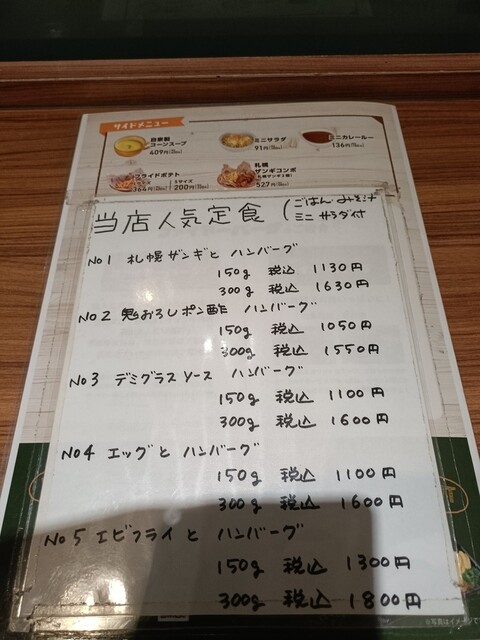 サイドメニュー
自家製
コーンスープ
409円
ミニサラダ
91円
ミニカレールー
136円
フライドポテト
364円
Sサイズ
200円
札幌
ザンギコンボ
527円
当店人気定食 (ごはん みそ汁
ミニ サラダ付
No1 札幌ザンギと ハンバーグ
150g 税込 1130円
300g 税込 1630円
No2 鬼おろしポン酢 ハンバーグ
150g 税込 1050円
300g 税込 1550円
No3 デミグラスソース ハンバーグ
150g 税込 1100円
300g 税込 1600円
No4 エッグと ハンバーグ
150g 税込 1100円
300g 税込 1600円
No5 エビフライと ハンバーグ
150g 税込 1300円
300g 税込 1800円
※写真はイメージで